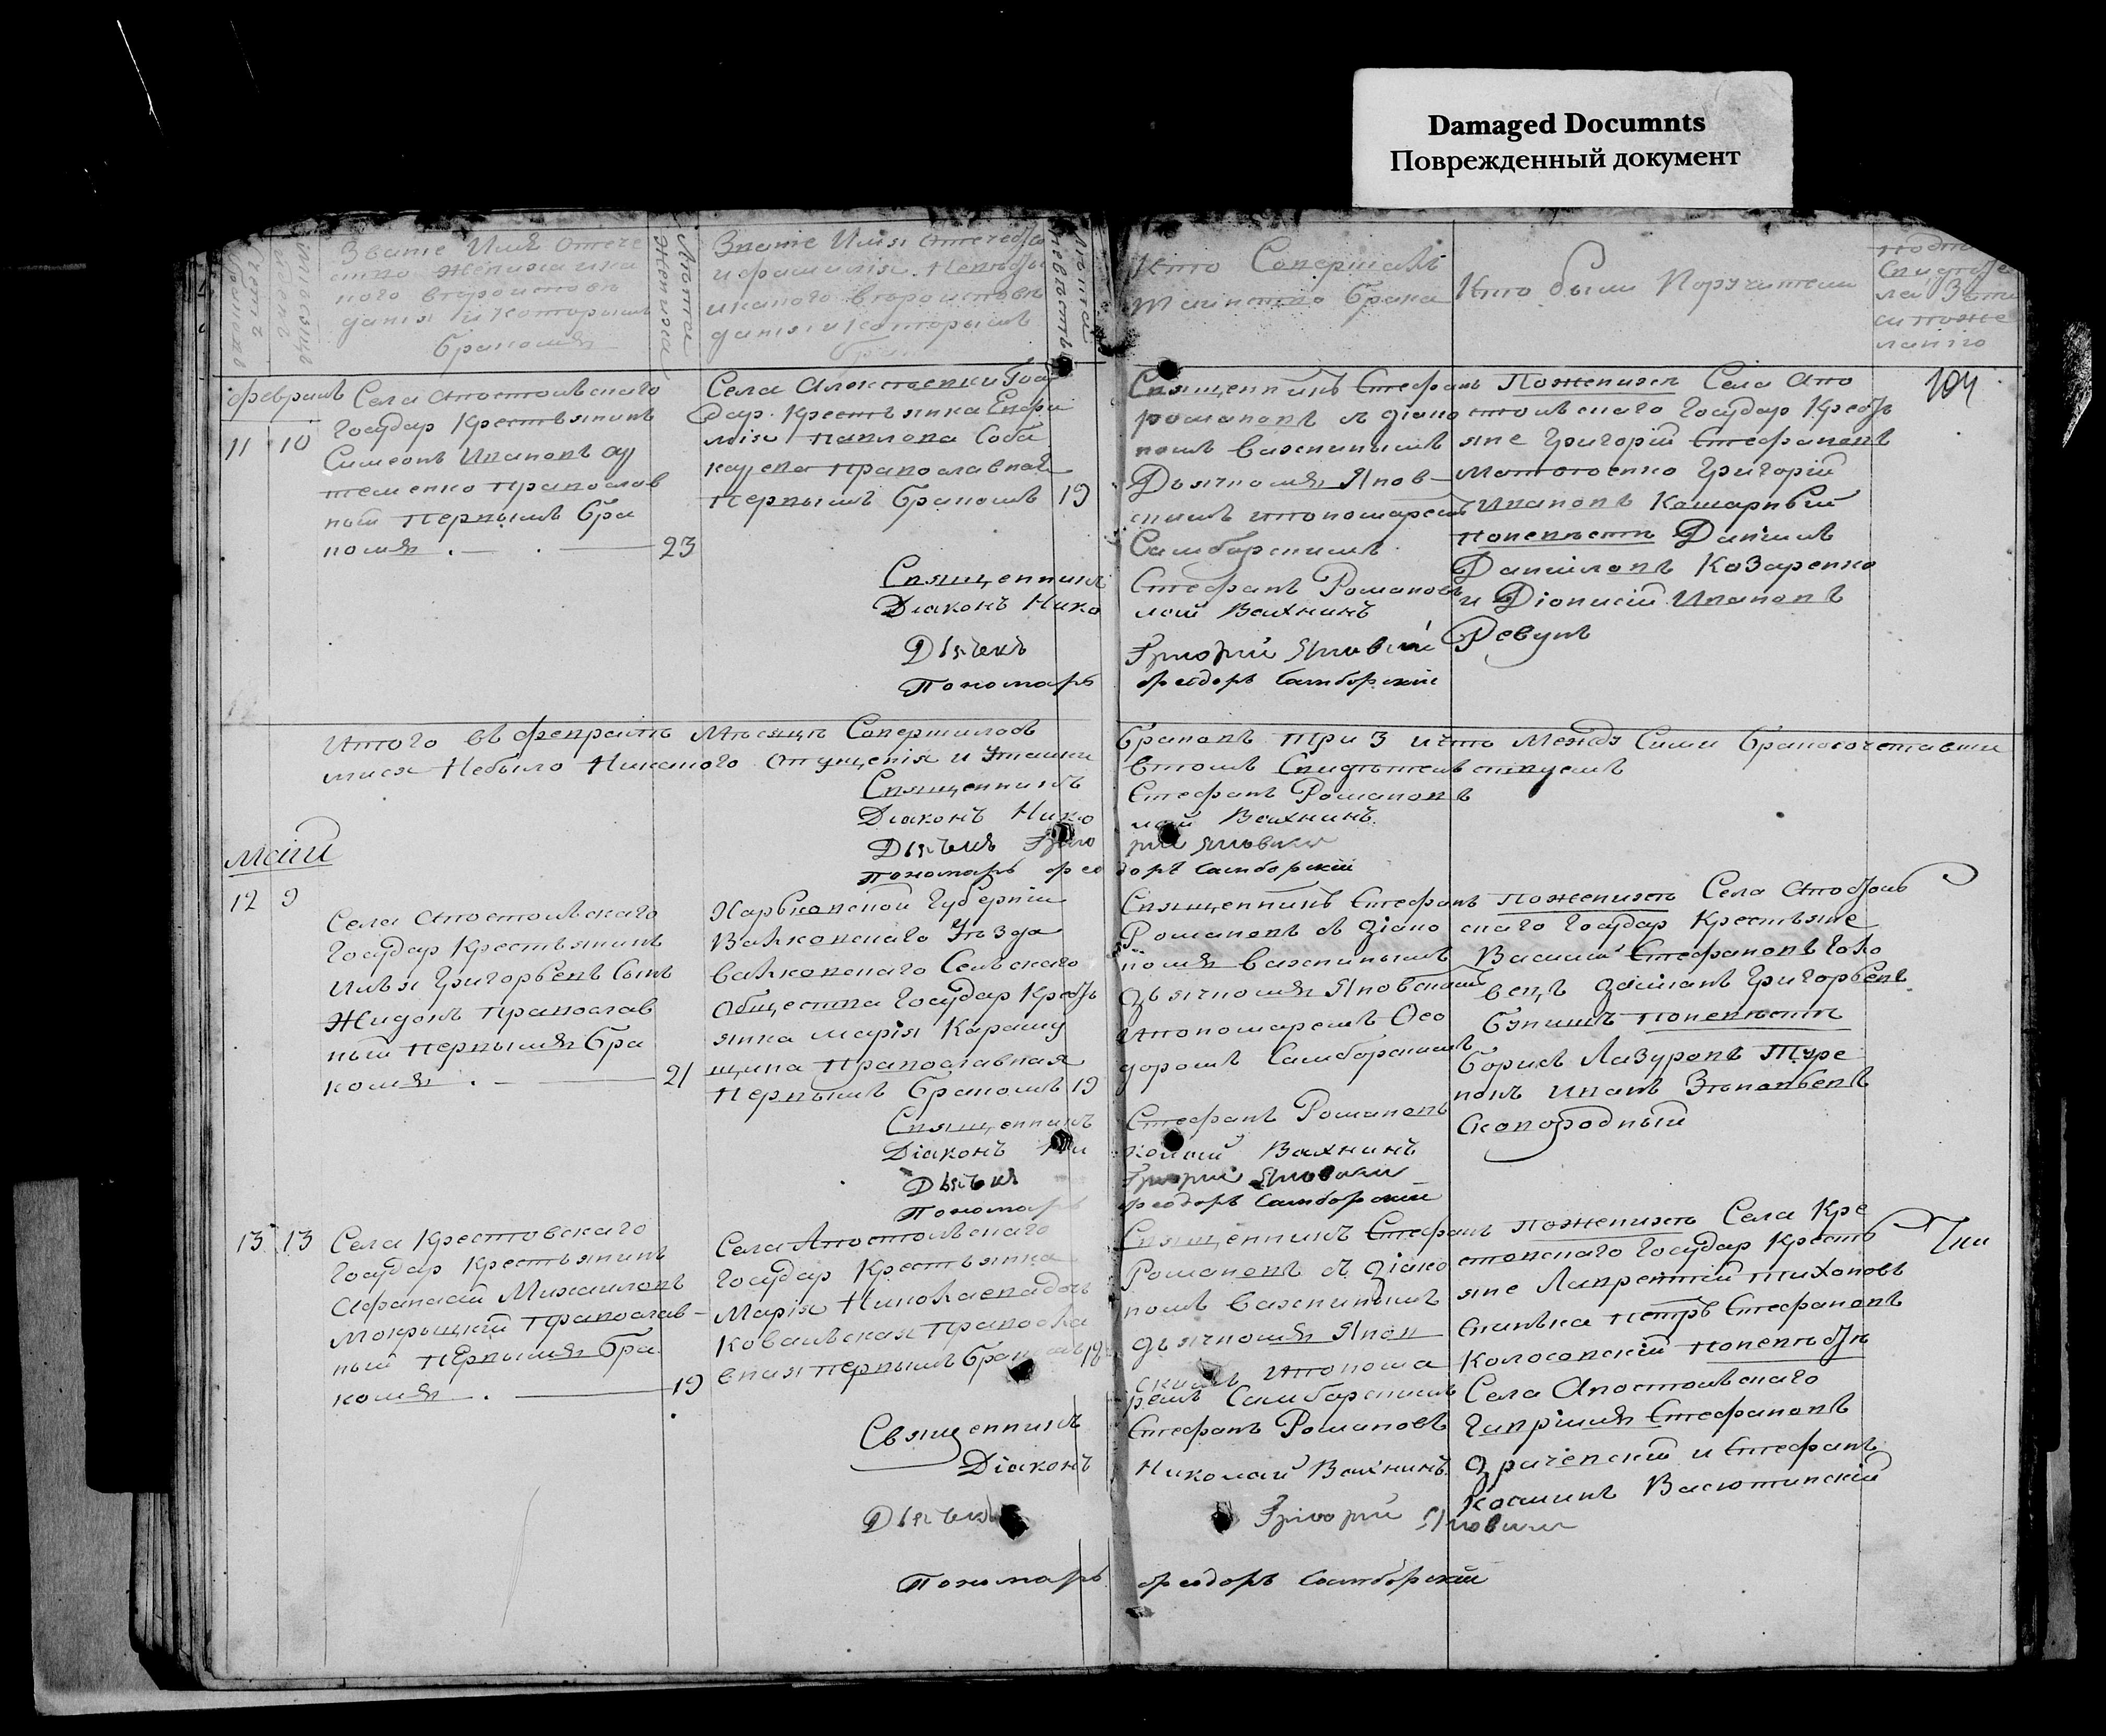 Damaged Documnts
Поврежденный документ
Званіе Имя отече
ство жениха и ка
кого вероисповѣ
данія и которымъ
бракомъ
Лѣта жениха
Званіе Имя отечество
и фамилія Невѣсты
и какого вероисповѣ
данія и которымъ
Лѣта невѣсты
Кто Совершалъ
таинство брака
Кто были Поручители
февраль
104
11 10
Села Апостольскаго
Государ Крестьянинъ
Симеонъ Ивановъ
православ
ный первымъ бра
комъ 23
Села Алексеевки Госу
дар. Крестьянка Евфи
мія Павлова Соба
православной
первымъ бракомъ 19
Священникъ Стефанъ
романовъ съ діако
номъ Вахнинымъ
Дьячкомъ Янов-
скимъ и пономаремъ
Самборскимъ
По женихе Села Апо
стольскаго Государ Кресть
яне Григорій Стефановъ
Григорій
Ивановъ Кошарный
по невѣсте Даніилъ
Даніиловъ Козаренко
и Діонисій Ивановъ
Ревунъ
Священникъ Стефанъ Романовъ
Діаконъ Николай Вахнинъ
Дьячекъ Григорій Яновскій
Пономарь Феодоръ Самборскій
Итого въ февралѣ Мѣсяцѣ Совершилось браковъ три 3 и что Между Сими бракосочетавши
мися Небыло Никакого опущенія и Утайки втомъ Свидѣтельствуемъ
Священникъ Стефанъ Романовъ
Діаконъ Николай Вахнинъ.
Дьячекъ Григорій Яновскій
Пономарь Феодоръ Самборскій
Маій
12 9
Села Апостольскаго
Государ Крестьянинъ
Илья Григорьевъ Сынъ
Жидокъ православ
ный первымъ бра
комъ 21
Харьковской Губерніи
Валковскаго Уѣзда
Валковскаго Сельскаго
Общества Государ Кресть
янка Марія Караму
щина Православная
первымъ бракомъ 19
Священникъ Стефанъ
Романовъ съ діако
номъ Вахнинымъ
дьячкомъ Яновскимъ
и пономаремъ Ѳео
доромъ Самборскимъ
По женихе Села Апостоль
скаго Государ Крестьяне
Василій Стефановъ Голо
вецъ Даміанъ Григорьевъ
по невѣсте
Борисъ Лазуровъ Туре
Скопородный
Священникъ Стефанъ Романовъ
Діаконъ Николай Вахнинъ
Дьячекъ Григорій Яновскій
Пономарь Феодоръ Самборскій
13. 13
Села Крестовскаго
Государ Крестьянинъ
Афанасій Михаиловъ
Мокрицкій православ-
ный Первымъ бра
комъ 19
Села Апостольскаго
Государ Крестьянка
Марія Николаева дочь
Ковальская Правосла
вная первымъ бракомъ 18
Священникъ Стефанъ
Романовъ съ діако
номъ Вахнинымъ
дьячкомъ Янов
скимъ и понома
ремъ Самборскимъ
По женихе Села Кре
стовскаго Государ Кресть
яне Лаврентій Тихоновъ
Петръ Стефановъ
Колосовскій по невѣсте
Села Апостольскаго
Гавріилъ Стефановъ
и Стефанъ
Косминъ Васютинскій
Священникъ Стефанъ Романовъ
Діаконъ Николай Вахнинъ.
Дьячекъ Григорій Яновскій
Пономарь Феодоръ Самборскій